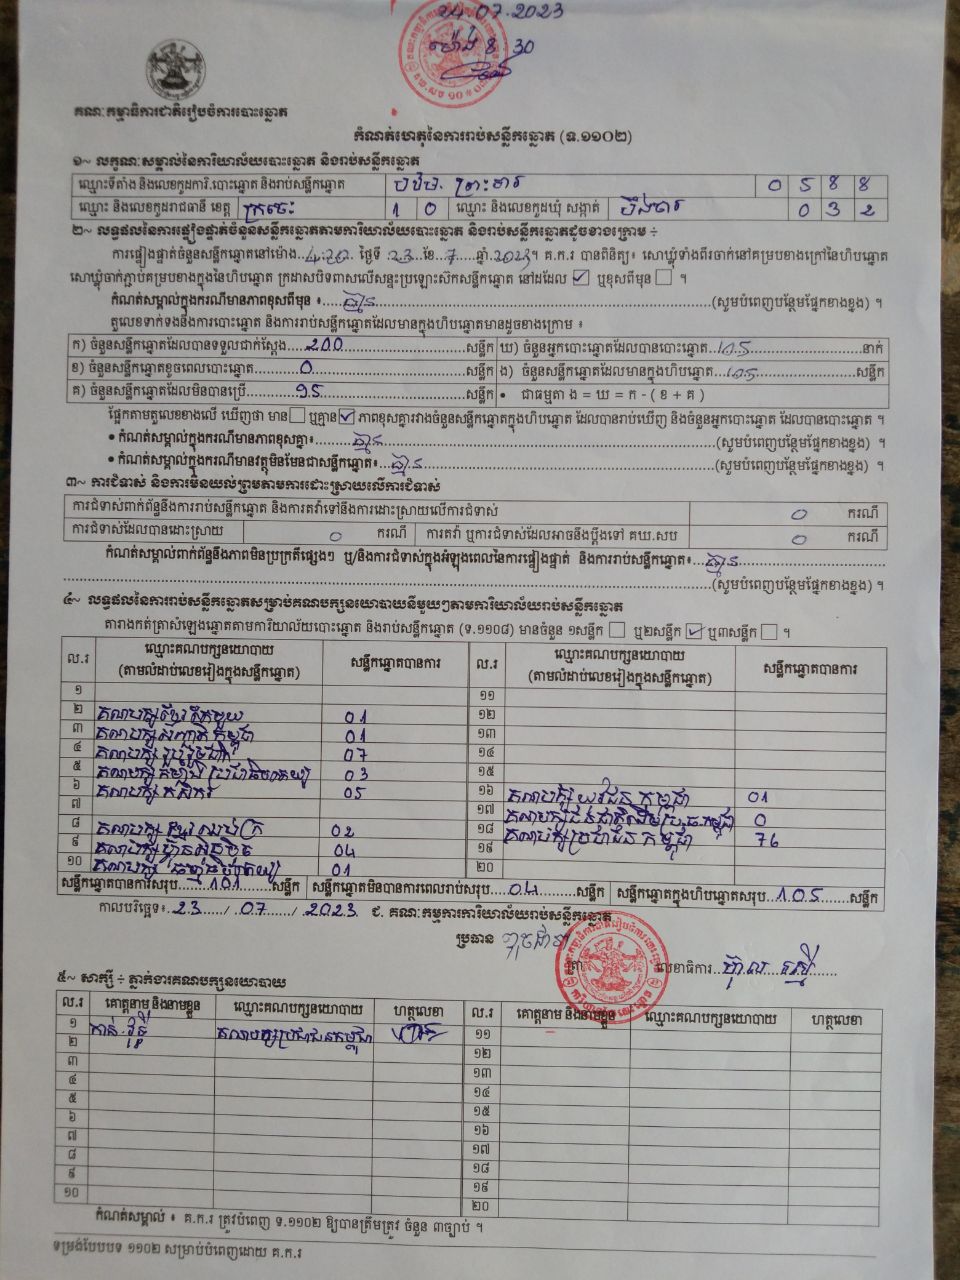 24-07-2023
ម៉ោង 8:30
គណៈកម្មាធិការជាតិរៀបចំការបោះឆ្នោត
កំណត់ហេតុនៃការរាប់សន្លឹកឆ្នោត (ទ.១១០២)
១~ លក្ខណៈសម្គាល់នៃការិយាល័យបោះឆ្នោត និងរាប់សន្លឹកឆ្នោត
ឈ្មោះទីតាំង និងលេខកូដការិ.បោះឆ្នោត និងរាប់សន្លឹកឆ្នោត 0 5 8 8
ឈ្មោះ និងលេខកូដរាជធានី ខេត្ត ក្រចេះ 1 0 ឈ្មោះ និងលេខកូដឃុំ សង្កាត់ បឹងចារ 0 3 2
២~ លទ្ធផលនៃការផ្ទៀងផ្ទាត់ចំនួនសន្លឹកឆ្នោតតាមការិយាល័យបោះឆ្នោត និងរាប់សន្លឹកឆ្នោតដូចខាងក្រោម ÷
ការផ្ទៀងផ្ទាត់ចំនួនសន្លឹកឆ្នោតនៅម៉ោង 4:20 ថ្ងៃទី 23 ខែ 7 ឆ្នាំ 2023។ គ.ក.រ បានពិនិត្យ៖ សោឃ្លុំទាំងពីរចាក់នៅគម្របខាងក្រៅនៃហិបឆ្នោត
សោឃ្លុំចាក់ភ្ជាប់គម្របខាងក្នុងនៃហិបឆ្នោត ក្រដាសបិទពាសលើសន្ទះប្រឡោះស៊កសន្លឹកឆ្នោត នៅដដែល ☑ ឬខុសពីមុន ☐ ។
កំណត់សម្គាល់ក្នុងករណីមានភាពខុសពីមុន ៖ គ្មាន (សូមបំពេញបន្ថែមផ្នែកខាងខ្នង) ។
តួលេខទាក់ទងនឹងការបោះឆ្នោត និងការរាប់សន្លឹកឆ្នោតដែលមានក្នុងហិបឆ្នោតមានដូចខាងក្រោម ៖
ក) ចំនួនសន្លឹកឆ្នោតដែលបានទទួលជាក់ស្តែង 200 សន្លឹក ឃ) ចំនួនអ្នកបោះឆ្នោតដែលបានបោះឆ្នោត 105 នាក់
ខ) ចំនួនសន្លឹកឆ្នោតខូចពេលបោះឆ្នោត 0 សន្លឹក ង) ចំនួនសន្លឹកឆ្នោតដែលមានក្នុងហិបឆ្នោត 105 សន្លឹក
គ) ចំនួនសន្លឹកឆ្នោតដែលមិនបានប្រើ 95 សន្លឹក • ជាធម្មតា ង = ឃ = ក - ( ខ + គ )
ផ្អែកតាមតួលេខខាងលើ ឃើញថា មាន ☐ ឬគ្មាន ☑ ភាពខុសគ្នារវាងចំនួនសន្លឹកឆ្នោតក្នុងហិបឆ្នោត ដែលបានរាប់ឃើញ និងចំនួនអ្នកបោះឆ្នោត ដែលបានបោះឆ្នោត ។
• កំណត់សម្គាល់ក្នុងករណីមានភាពខុសគ្នា៖ គ្មាន (សូមបំពេញបន្ថែមផ្នែកខាងខ្នង) ។
• កំណត់សម្គាល់ក្នុងករណីមានវត្ថុមិនមែនជាសន្លឹកឆ្នោត៖ គ្មាន (សូមបំពេញបន្ថែមផ្នែកខាងខ្នង) ។
៣~ ការជំទាស់ និងការមិនយល់ព្រមតាមការដោះស្រាយលើការជំទាស់
ការជំទាស់ពាក់ព័ន្ធនឹងការរាប់សន្លឹកឆ្នោត និងការតវ៉ាទៅនឹងការដោះស្រាយលើការជំទាស់ 0 ករណី
ការជំទាស់ដែលបានដោះស្រាយ 0 ករណី ការតវ៉ា ឬការជំទាស់ដែលអាចនឹងប្តឹងទៅ គឃ.សប 0 ករណី
កំណត់សម្គាល់ពាក់ព័ន្ធនឹងភាពមិនប្រក្រតីផ្សេងៗ ឬ/និងការជំទាស់ក្នុងអំឡុងពេលនៃការផ្ទៀងផ្ទាត់ និងការរាប់សន្លឹកឆ្នោត៖ គ្មាន
(សូមបំពេញបន្ថែមផ្នែកខាងខ្នង) ។
៤~ លទ្ធផលនៃការរាប់សន្លឹកឆ្នោតសម្រាប់គណបក្សនយោបាយនីមួយៗតាមការិយាល័យរាប់សន្លឹកឆ្នោត
តារាងកត់ត្រាសំឡេងឆ្នោតតាមការិយាល័យបោះឆ្នោត និងរាប់សន្លឹកឆ្នោត (ទ.១១០៨) មានចំនួន ១សន្លឹក ☐ ឬ២សន្លឹក ☑ ឬ៣សន្លឹក ☐ ។
ល.រ ឈ្មោះគណបក្សនយោបាយ (តាមលំដាប់លេខរៀងក្នុងសន្លឹកឆ្នោត) សន្លឹកឆ្នោតបានការ ល.រ ឈ្មោះគណបក្សនយោបាយ (តាមលំដាប់លេខរៀងក្នុងសន្លឹកឆ្នោត) សន្លឹកឆ្នោតបានការ
១ ១១
២ គណបក្សខ្មែរតែមួយ 01 ១២
៣ គណបក្សសញ្ជាតិកម្ពុជា 01 ១៣
៤ គណបក្ស 07 ១៤
៥ គណបក្សកម្លាំងប្រជាធិបតេយ្យ 03 ១៥
៦ គណបក្សកសិករ 05 ១៦ គណបក្សយុវជនកម្ពុជា 01
៧ ១៧ គណបក្សជនជាតិដើមប្រ.ធ.កម្ពុជា 0
៨ គណបក្សខ្មែរឈប់ក្រ 02 ១៨ គណបក្សប្រជាជនកម្ពុជា 76
៩ គណបក្សហ្វ៊ុនស៊ិនប៉ិច 04 ១៩
១០ គណបក្ស 01 ២០
សន្លឹកឆ្នោតបានការសរុប 101 សន្លឹក សន្លឹកឆ្នោតមិនបានការពេលរាប់សរុប 04 សន្លឹក សន្លឹកឆ្នោតក្នុងហិបឆ្នោតសរុប 105 សន្លឹក
កាលបរិច្ឆេទ៖ 23 / 07 / 2023 ជ. គណៈកម្មការការិយាល័យរាប់សន្លឹកឆ្នោត
ប្រធាន លេខាធិការ
៥~ សាក្សី ÷ ភ្នាក់ងារគណបក្សនយោបាយ
ល.រ គោត្តនាម និងនាមខ្លួន ឈ្មោះគណបក្សនយោបាយ ហត្ថលេខា ល.រ គោត្តនាម និងនាមខ្លួន ឈ្មោះគណបក្សនយោបាយ ហត្ថលេខា
១ កាន់ វុទ្ធី គណបក្សប្រជាជនកម្ពុជា ១១
២ ១២
៣ ១៣
៤ ១៤
៥ ១៥
៦ ១៦
៧ ១៧
៨ ១៨
៩ ១៩
១០ ២០
កំណត់សម្គាល់ ៖ គ.ក.រ ត្រូវបំពេញ ទ.១១០២ ឱ្យបានត្រឹមត្រូវ ចំនួន ៣ច្បាប់ ។
ទម្រង់បែបបទ ១១០២ សម្រាប់បំពេញដោយ គ.ក.រ